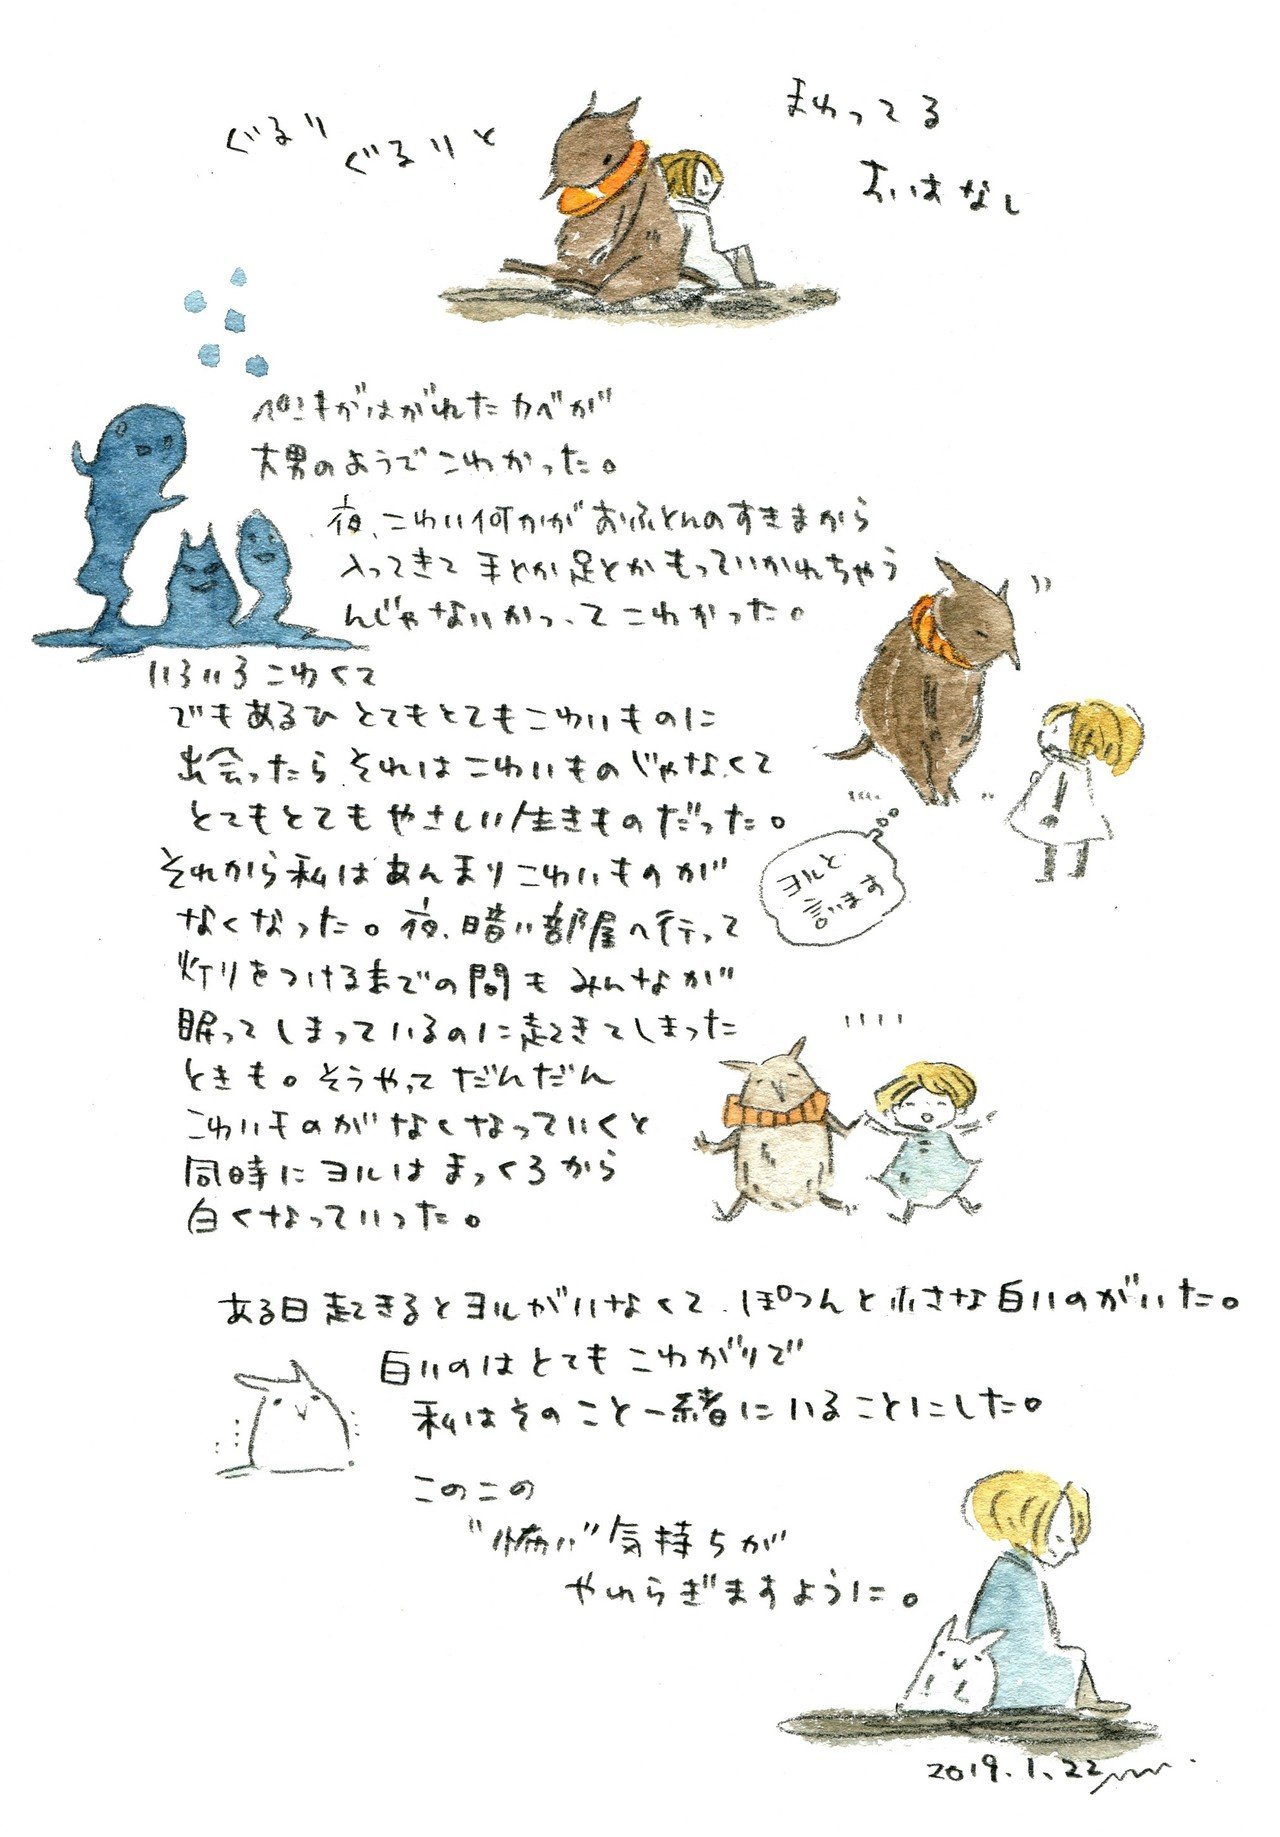 ぐるり
ぐるりと
まわってる
おはなし
ペンキがはがれたカベが
大男のようでこわかった。
夜、こわい何かがおふとんのすきまから
入ってきて手とか足とかもっていかれちゃう
んじゃないかってこわかった。
いろいろこわくて
でもあるひとてもとてもこわいものに
出会ったらそれはこわいものじゃなくて
とてもとてもやさしい生きものだった。
それから私はあんまりこわいものが
なくなった。夜、暗い部屋へ行って
灯りをつけるまでの間もみんなが
眠ってしまっているのに起きてしまった
ときも。そうやってだんだん
こわいものがなくなっていくと
同時にヨルはまっくろから
白くなっていった。
ヨルと
言います
ある日起きるとヨルがいなくて、ぽつんと小さな白いのがいた。
白いのはとてもこわがりで
私はそのこと一緒にいることにした。
このこの
"怖い"気持ちが
やわらぎますように。
2019.1.22